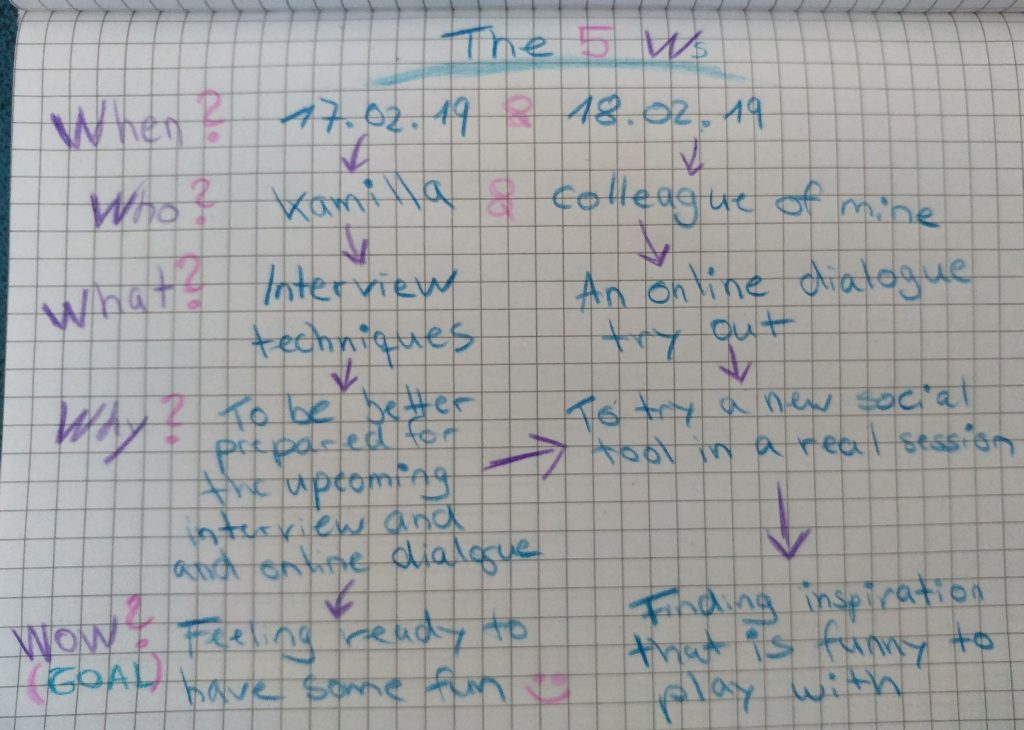 The 5 Ws
When? 17.02.19 & 18.02.19
Who? Kamilla & colleague of mine
What? Interview An online dialogue
techniques try out
Why? To be better To try a new social
prepared for tool in a real session
the upcoming
interview and
and online dialogue
WOW? Feeling ready to Finding inspiration
(GOAL) have some fun that is funny to
play with